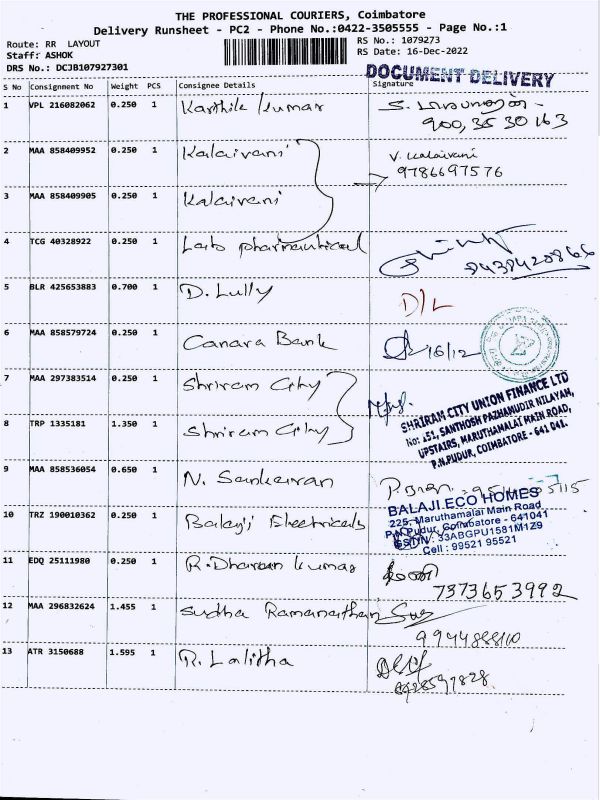 THE PROFESSIONAL COURIERS, Coimbatore
Delivery Runsheet - PC2 - Phone No.:0422-3505555 - Page No.:1
Route: RR LAYOUT
Staff: ASHOK
DRS No.: DCJB107927301
RS No.: 1079273
RS Date: 16-Dec-2022
DOCUMENT DELIVERY
S No Consignment No Weight PCS Consignee Details Signature
1 VPL 216082062 0.250 1 Karthik kumar
2 MAA 858409952 0.250 1 Kalaivani V. Kalaivani
9786697576
3 MAA 858409905 0.250 1 Kalaivani
4 TCG 40328922 0.250 1 Lab pharmautical
5 BLR 425653883 0.700 1 D. Lully D/L
6 MAA 858579724 0.250 1 Canara Bank 16/12
7 MAA 297383514 0.250 1 Shriram City
8 TRP 1335181 1.350 1 Shriram City
SHRIRAM CITY UNION FINANCE LTD
No: 151, SANTHOSH PAZHAMUDIR NILAYAM,
UPSTAIRS, MARUTHAMALAI MAIN ROAD,
P.N.PUDUR, COIMBATORE - 641 041.
9 MAA 858536054 0.650 1 N. Sankaran
10 TRZ 190010362 0.250 1 Balaji Electricals
BALAJI ECO HOMES
225, Maruthamalai Main Road
P.N.Pudur, Coimbatore - 641041
GSTIN : 33ABGPU1581M1Z9
Cell : 99521 95521
11 EDQ 25111980 0.250 1 R. Dharan kumar
7373653992
12 MAA 296832624 1.455 1 Sudha Ramanathan
13 ATR 3150688 1.595 1 R. Lalitha